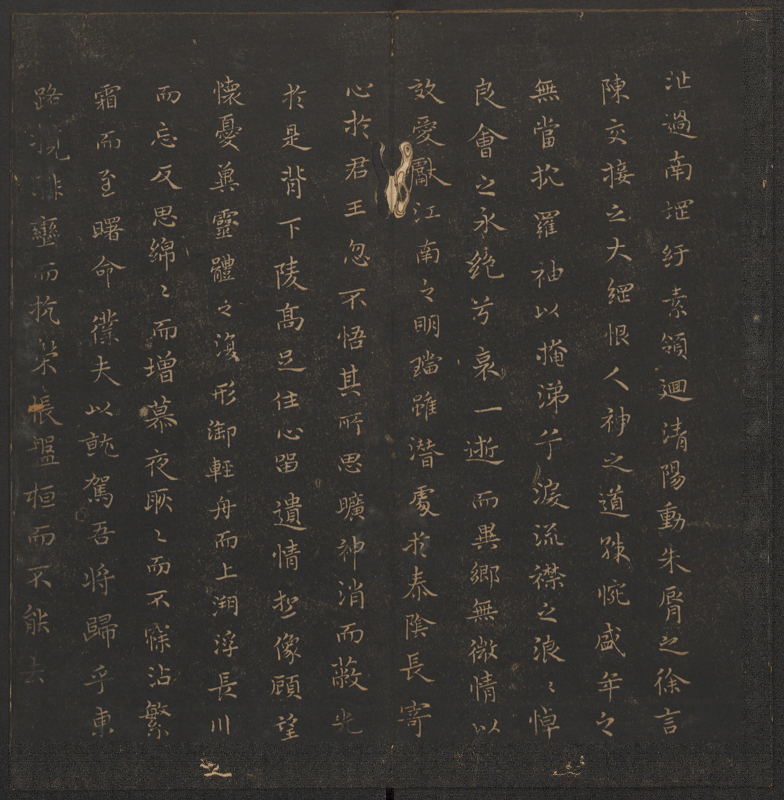 沚過南堽紆素領廻清陽動朱脣之徐言
陳交接之大綱恨人神之道殊惋盛年之
無當抗羅袖以掩涕兮淚流襟之浪〻悼
良會之永絶兮哀一逝而異鄉無微情以
效愛獻江南之明璫雖潛處於泰陰長寄
心於君王忽不悟其所思曠神消而蔽光
於是背下陵高足住心留遺情想像顧望
懷憂冀靈體之復形御輕舟而上溯浮長川
而忘反思綿〻而增慕夜耿〻而不寐沾繁
霜而至曙命僕夫以就駕吾將歸乎東
路攬騑轡而抗策悵盤桓而不能去